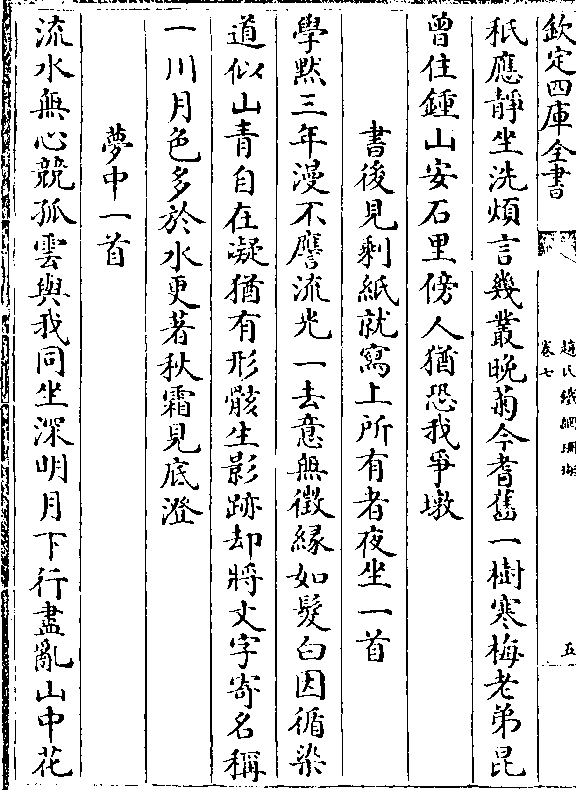 欽定四庫全書
趙氏鐵網珊瑚
卷七
五
秖應靜坐洗煩言幾叢晚菊今耆舊一樹寒梅老弟昆
曾住鍾山安石里傍人猶恐我爭墩
書後見剩紙就寫上所有者夜坐一首
學黙三年漫不譍流光一去意無徴緣如髮白因循染
道似山青自在凝猶有形骸生影跡却將文字寄名稱
一川月色多於水更著秋霜見底澄
夢中一首
流水無心競孤雲與我同坐深明月下行盡亂山中花